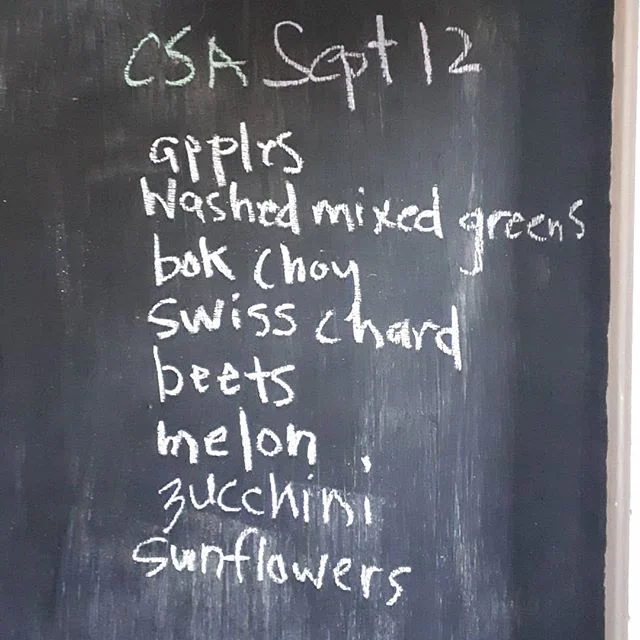 CSA Sept 12
apples
Washed mixed greens
bok choy
swiss chard
beets
melon
zucchini
sunflowers